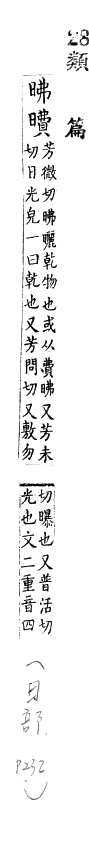 28
類篇
昲
曊
芳微切昲曬乾物也或从費昲又芳未
切日光皃一曰乾也又芳問切又敷勿
切曝也又普活切
光也文二重音四
(日部.
P232)